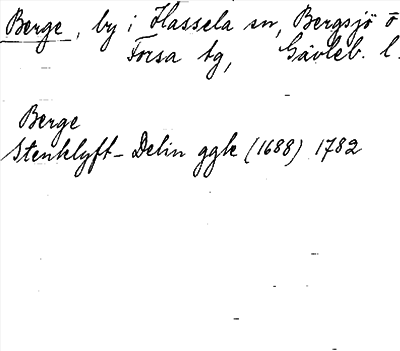 Berge, by i Hassela sn, Bergsjö o
Forsa tg, Gävleb. l.
Berge
Stenklyft - Delin ggk (1688) 1782